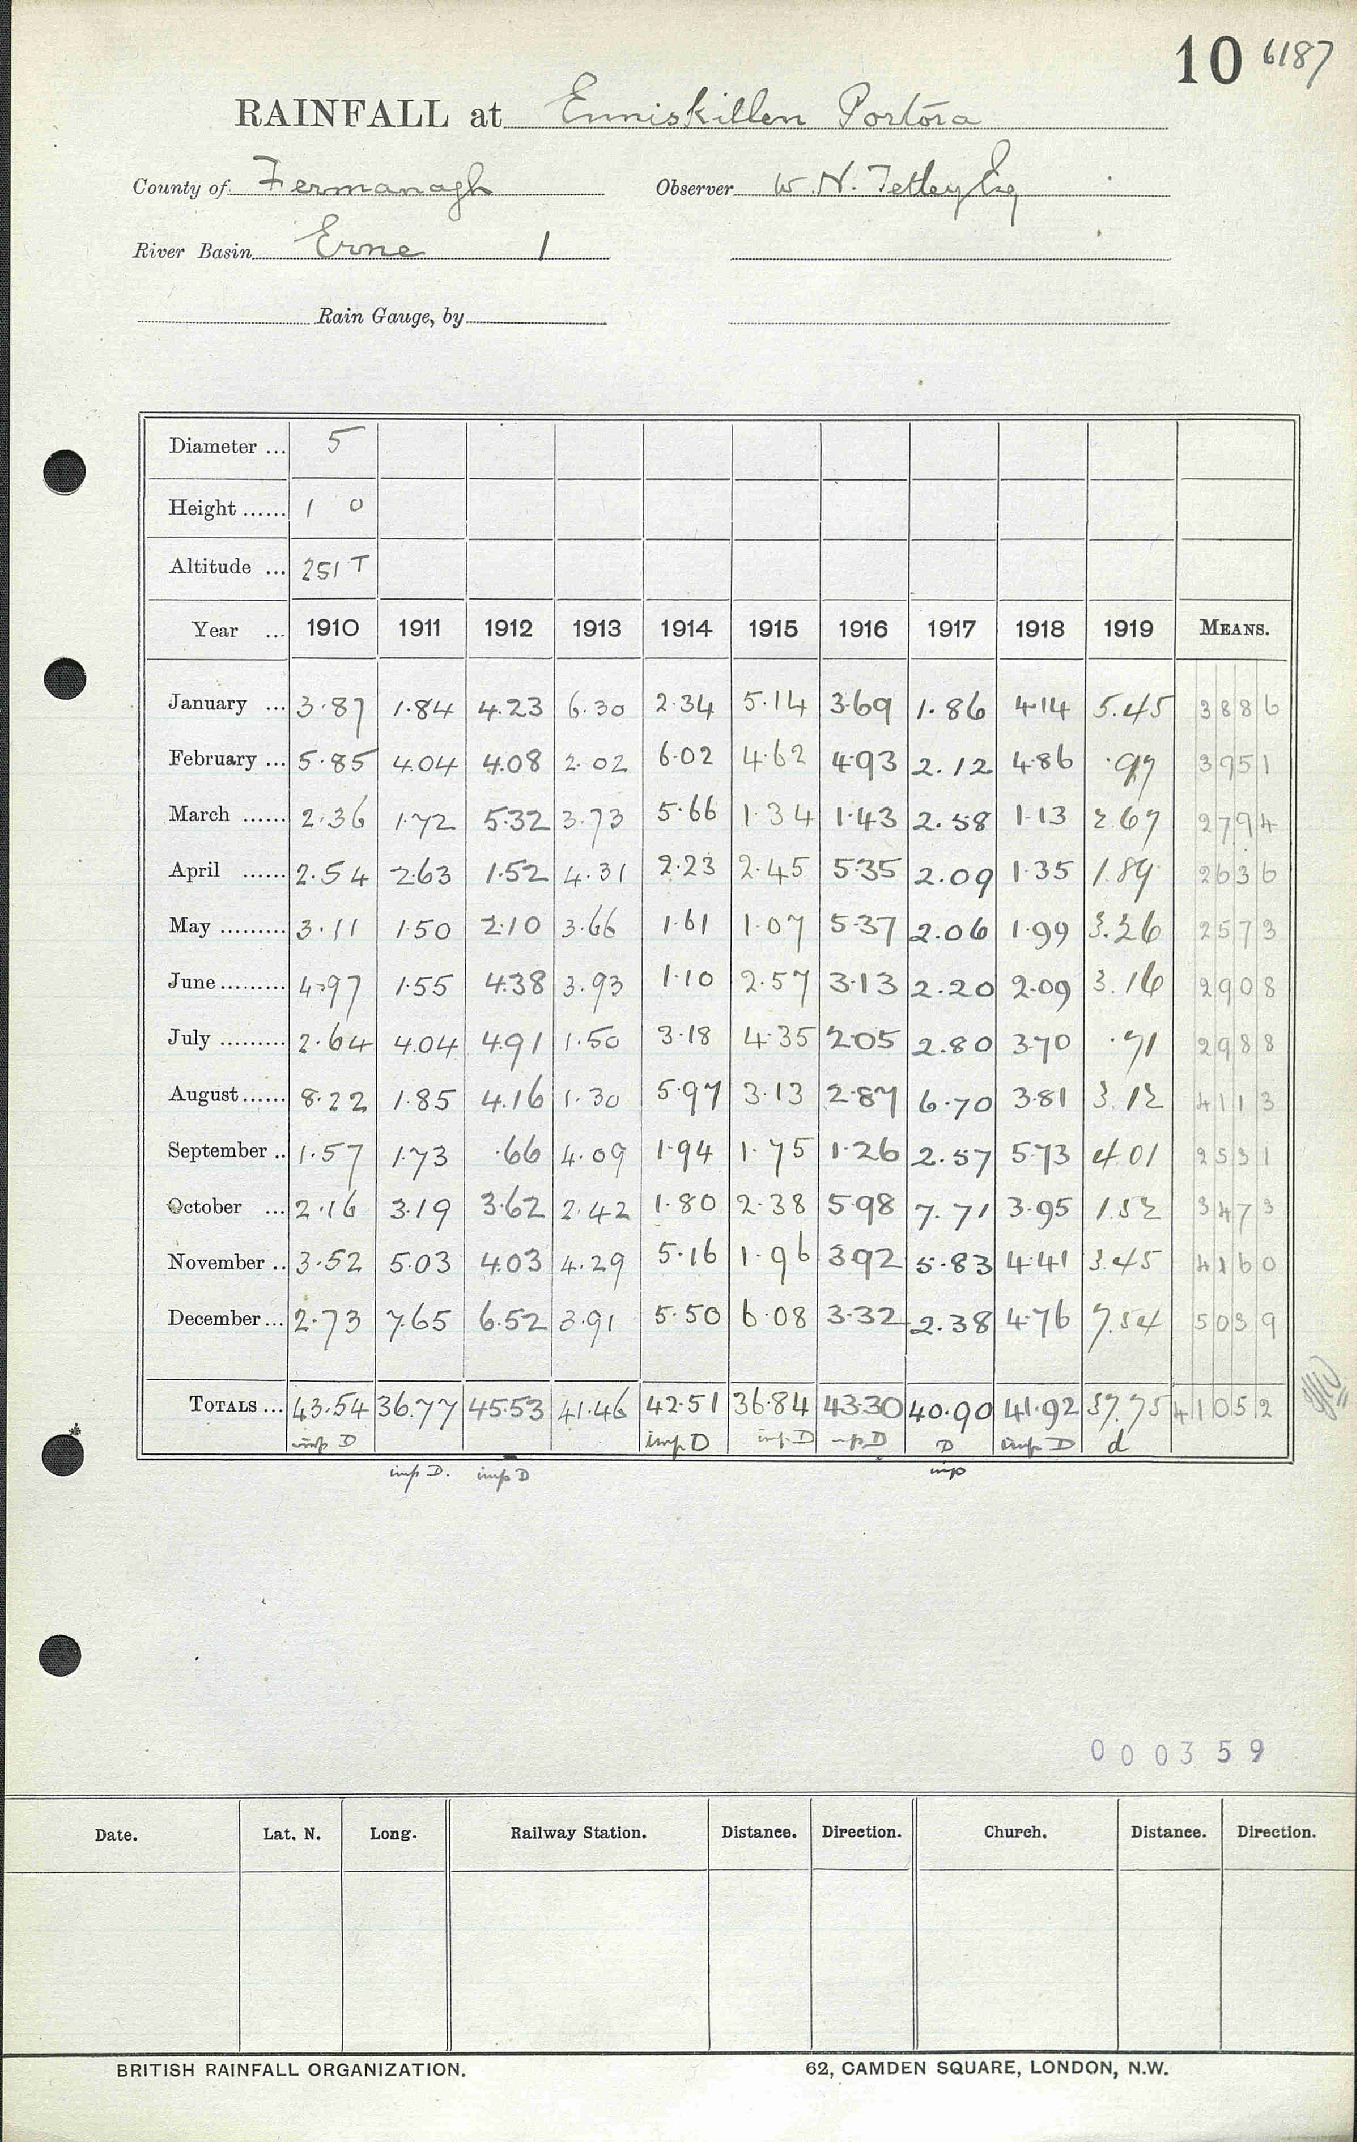 10 6187
RAINFALL at Enniskillen Portora
County of Fermanagh Observer W. N. Tetley Esq
River Basin Erne 1
Rain Gauge, by
Diameter ... 5
Height ...... 1 0
Altitude ... 251 T
Year ... 1910 1911 1912 1913 1914 1915 1916 1917 1918 1919 MEANS.
January ... 3.87 1.84 4.23 6.30 2.34 5.14 3.69 1.86 4.14 5.45 3886
February ... 5.85 4.04 4.08 2.02 6.02 4.62 4.93 2.12 4.86 .97 3951
March ...... 2.36 1.72 5.32 3.73 5.66 1.34 1.43 2.58 1.13 2.67 2794
April ...... 2.54 2.63 1.52 4.31 2.23 2.45 5.35 2.09 1.35 1.89 2636
May ......... 3.11 1.50 2.10 3.66 1.61 1.07 5.37 2.06 1.99 3.26 2573
June ......... 4.97 1.55 4.38 3.93 1.10 2.57 3.13 2.20 2.09 3.16 2908
July ......... 2.64 4.04 4.91 1.50 3.18 4.35 2.05 2.80 3.70 .71 2988
August ...... 8.22 1.85 4.16 1.30 5.97 3.13 2.87 6.70 3.81 3.12 4113
September .. 1.57 1.73 .66 4.09 1.94 1.75 1.26 2.57 5.73 4.01 2531
October ... 2.16 3.19 3.62 2.42 1.80 2.38 5.98 7.71 3.95 1.52 3473
November .. 3.52 5.03 4.03 4.29 5.16 1.96 3.92 5.83 4.41 3.45 4160
December ... 2.73 7.65 6.52 3.91 5.50 6.08 3.32 2.38 4.76 7.54 5039
TOTALS ... 43.54 36.77 45.53 41.46 42.51 36.84 43.30 40.90 41.92 37.75 41052
imp D imp D imp D imp D D imp D d
imp D. imp D imp
000359
Date. Lat. N. Long. Railway Station. Distance. Direction. Church. Distance. Direction.
BRITISH RAINFALL ORGANIZATION. 62, CAMDEN SQUARE, LONDON, N.W.